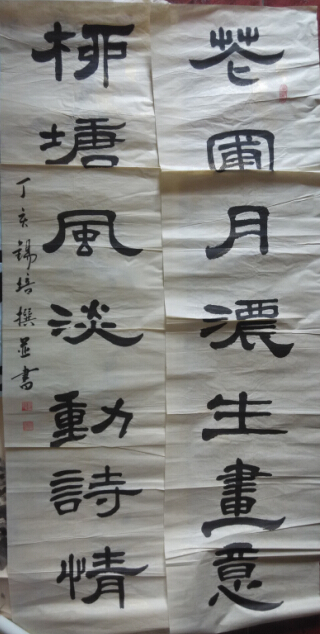 花圃月濃生畫意
柳塘風淡動詩情
丁亥錫培撰並書